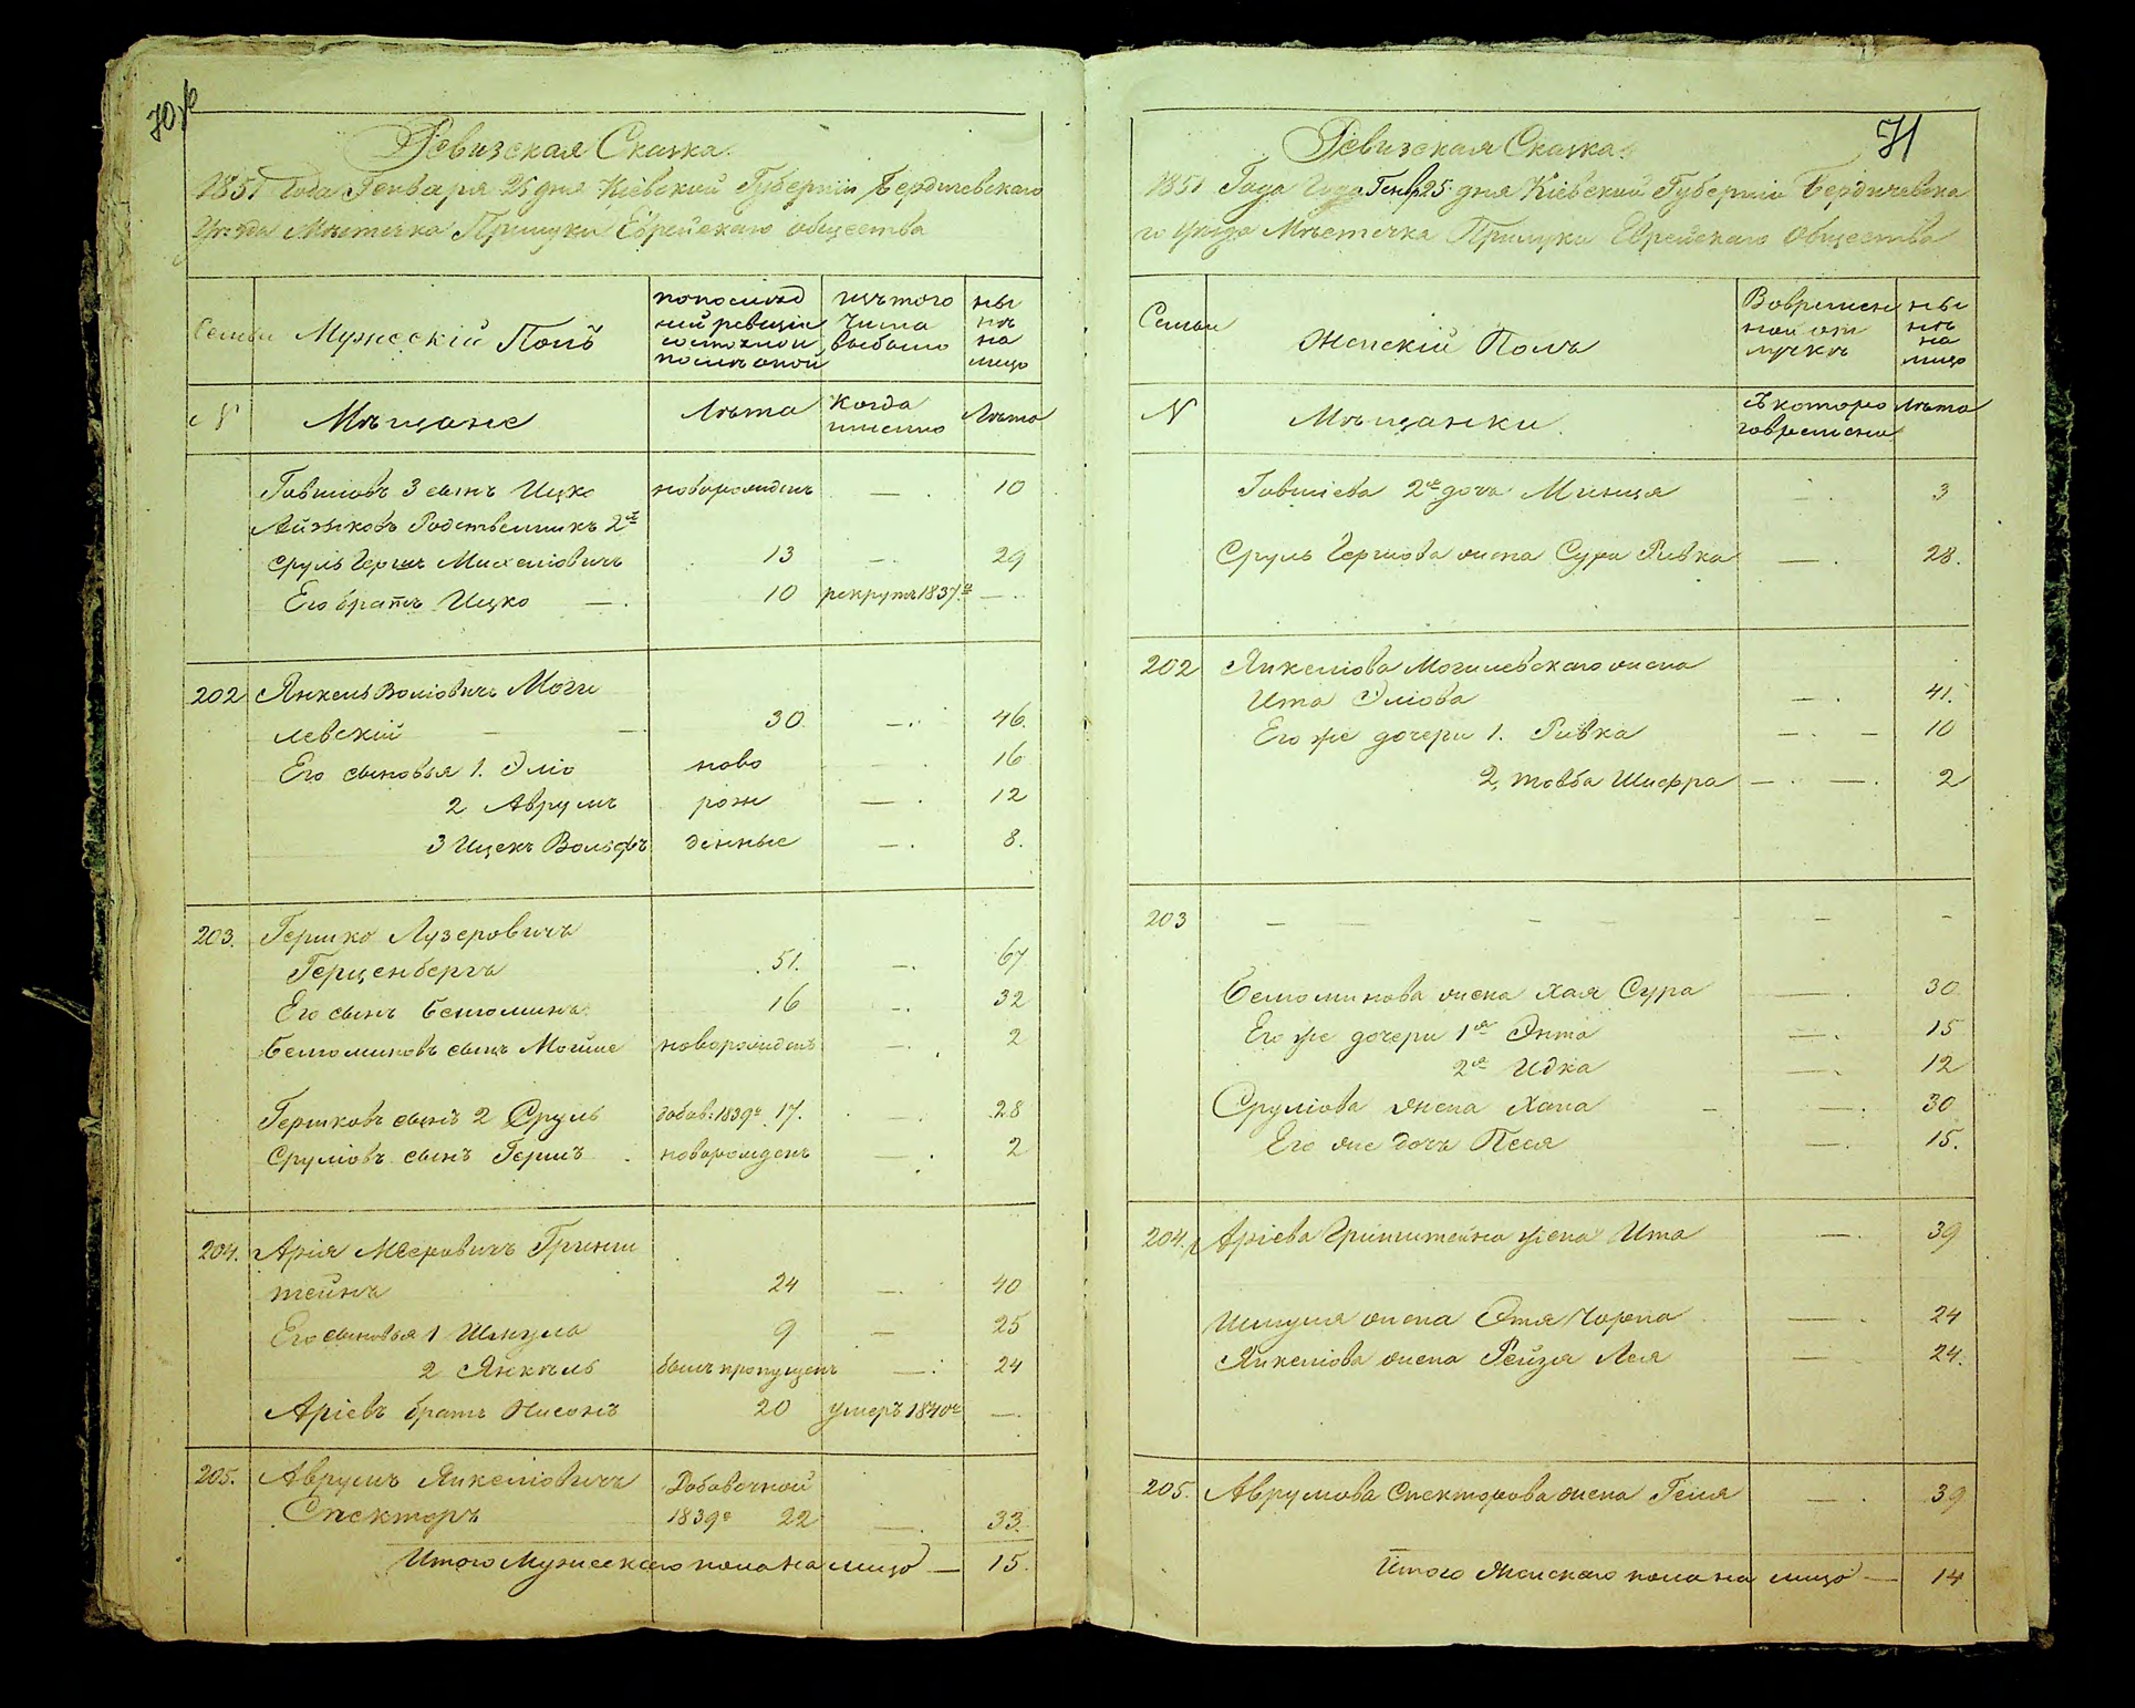 70
Ревизская Сказка.
1851 Года Генваря 25 дня Кіевской Губерніи Бердичевскаго
Уѣзда Мѣстечка Прилуки Еврейскаго общества
Семьи
Мужескій Полъ
по последней ревизіи состояло и после оной
изъ того числа выбыло
ны нѣ на лицо
N
Мѣщане
Лѣта
Когда именно
Лѣта
Говшіовъ 3 сынъ Ицко новорожденъ — 10
Айзыковъ Родственникъ 2й
Сруль Гершъ Михеліовичъ 13 — 29
Его братъ Ицко — 10 рекрутъ 1837г —
202 Янкель Воліовичъ Моги
левскій — — 30 — 46.
Его сыновья 1. Эліо ново — 16
2 Аврумъ рож — 12
3 Ицекъ Вольфъ денные — 8.
203. Гершко Лузеровичъ
Герценбергъ 51. — 67
Его сынъ Беніоминъ 16 — 32
Беніоминовъ сынъ Мойше новорожденъ — 2
Гершковъ сынъ 2 Сруль добав: 1839г. 17. — 28
Сруліовъ сынъ Гершъ новорожденъ — 2
204. Арія Мееровичъ Гринш
тейнъ 24 — 40
Его сыновья 1 Шмуль 9 — 25
2 Янкель былъ пропущенъ — 24
Аріевъ братъ Нисонъ 20 умеръ 1840г —
205. Аврумъ Янкеліовичъ Добавочной
Спекторъ 1839г 22 — 33.
Итого Мужескаго пола на лицо — 15.
71
Ревизская Сказка.
1851 Года Года Генвр 25 дня Кіевской Губерніи Бердичевска
го Уѣзда Мѣстечка Прилуки Еврейскаго Общества
Семьи
Женскій Полъ
Во временной отлучкѣ
ны нѣ на лицо
N
Мѣщанки
Съ котораго времени
Лѣта
Говшіева 2я дочь Минця — 3
Сруль Гершова жена Сура Ривка — 28.
202 Янкеліова Могилевскаго жена
Ита Эліова — 41.
Его же дочери 1. Ривка — — 10
2, товба Шифра — — 2
203 — — — — — —
Беніоминова жена Хая Сура — 30
Его же дочери 1я Энта — 15
2я Идка — 12
Сруліова жена Хана — — 30
Его же дочь Песя — 15.
204. Аріева Гринштейна жена Ита — 39
Шмуля жена Этя Чарна — 24
Янкеліова жена Рейзя Лея — 24.
205. Аврумова Спекторова жена Геня — 39
Итого Женскаго пола на лицо — 14